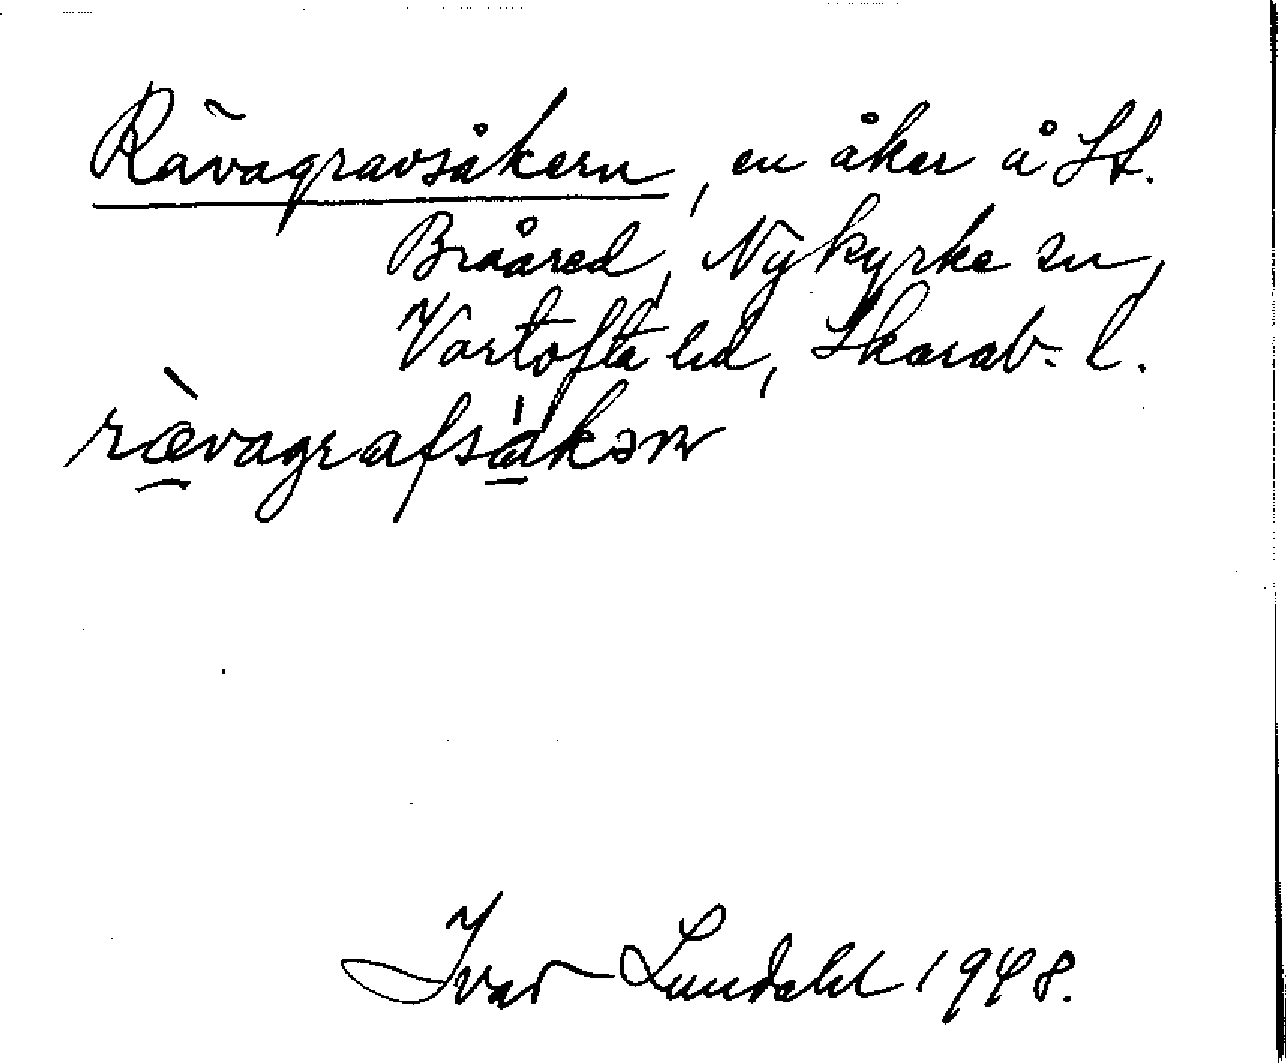 Rävagravsåkern, en åker å St.
Braåred, Nykyrke sn,
Vartofta hd, Skarab. l.
rævagrafsåkən
Ivar Lundahl 1948.